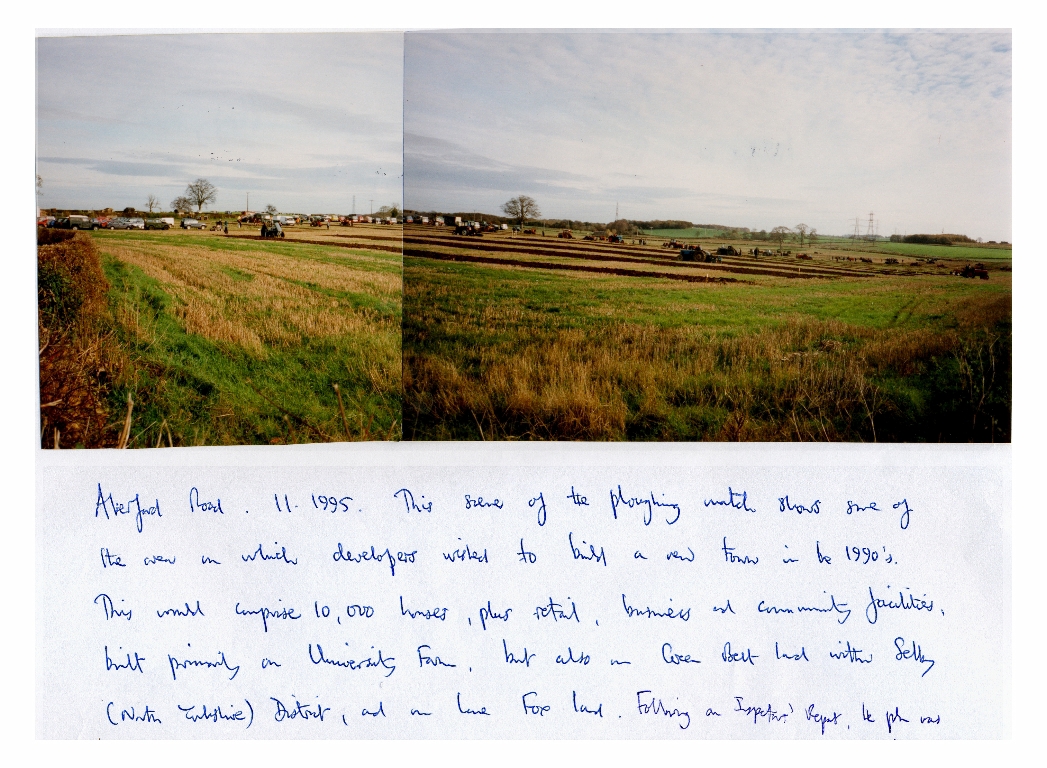 Aberford Road. 11. 1995. This scene of the ploughing match shows some of
the area on which developers wished to build a new town in the 1990's.
This would comprise 10,000 houses, plus retail, business and community facilities,
built primarily on University Farm, but also on Green Belt land within Selby
(North Yorkshire) District, and on Lane Fox land. Following an Inspectors' Report, the plan was